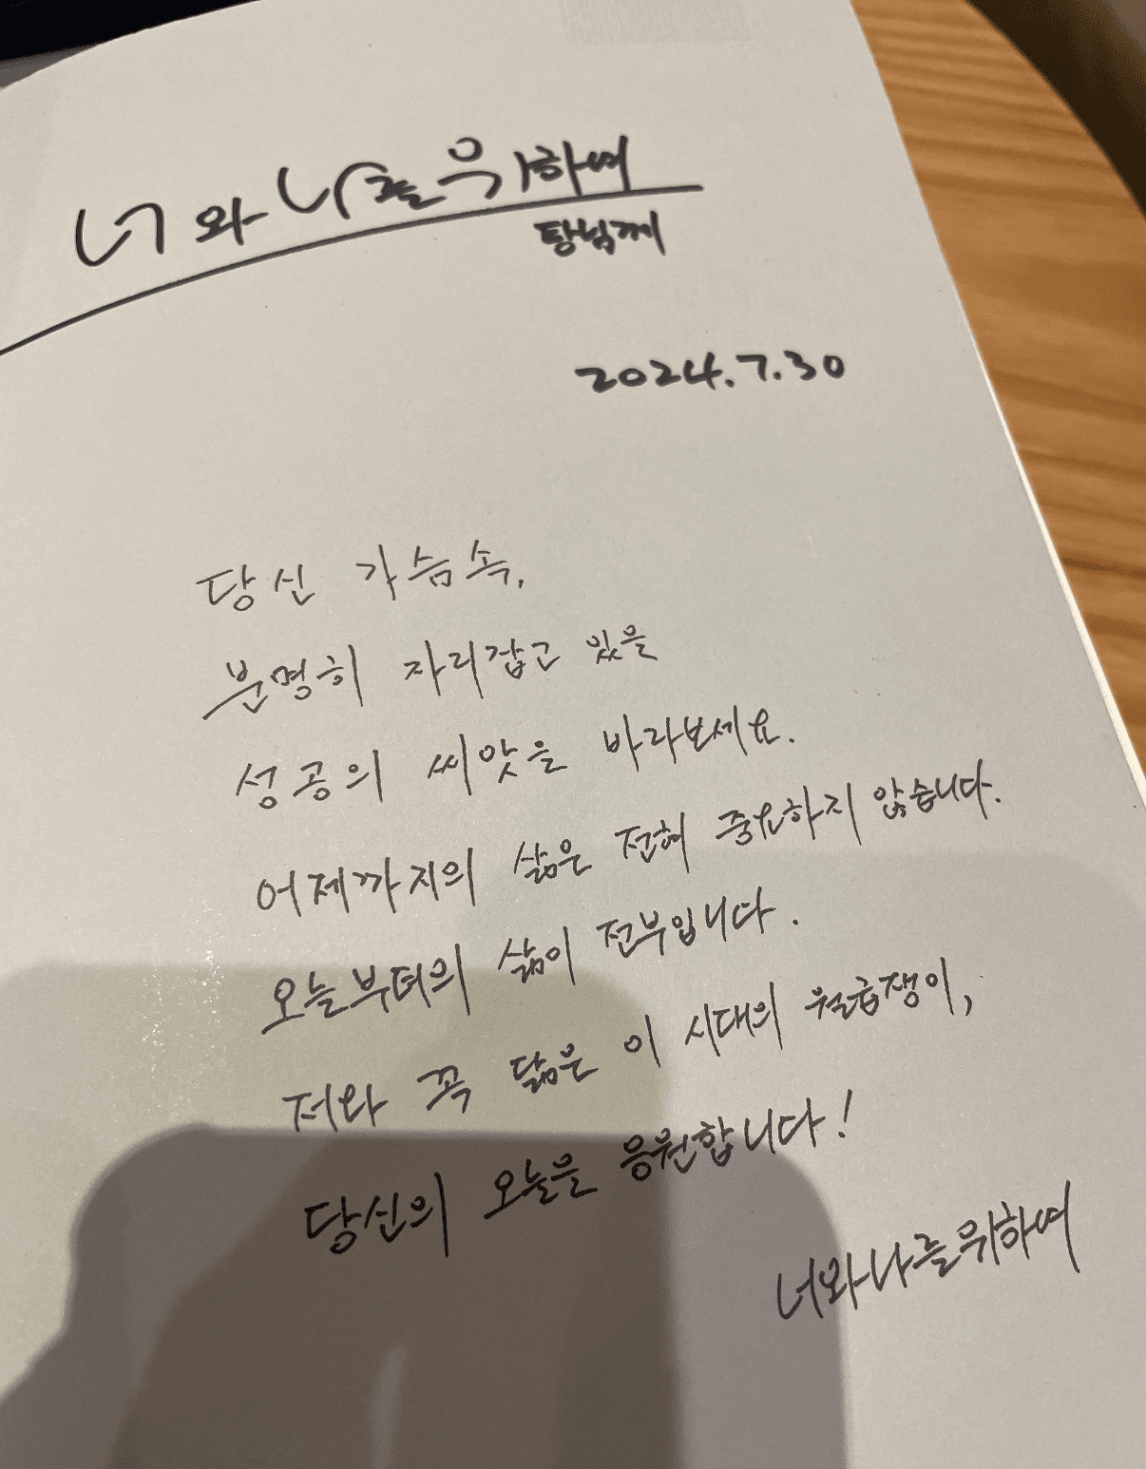 너와 나를 위하여
탕님께
2024.7.30
당신 가슴속,
분명히 자리잡고 있을
성공의 씨앗을 바라보세요.
어제까지의 삶은 전혀 중요하지 않습니다.
오늘부터의 삶이 전부입니다.
저와 꼭 닮은 이 시대의 월급쟁이,
당신의 오늘을 응원합니다!
너와나를위하여